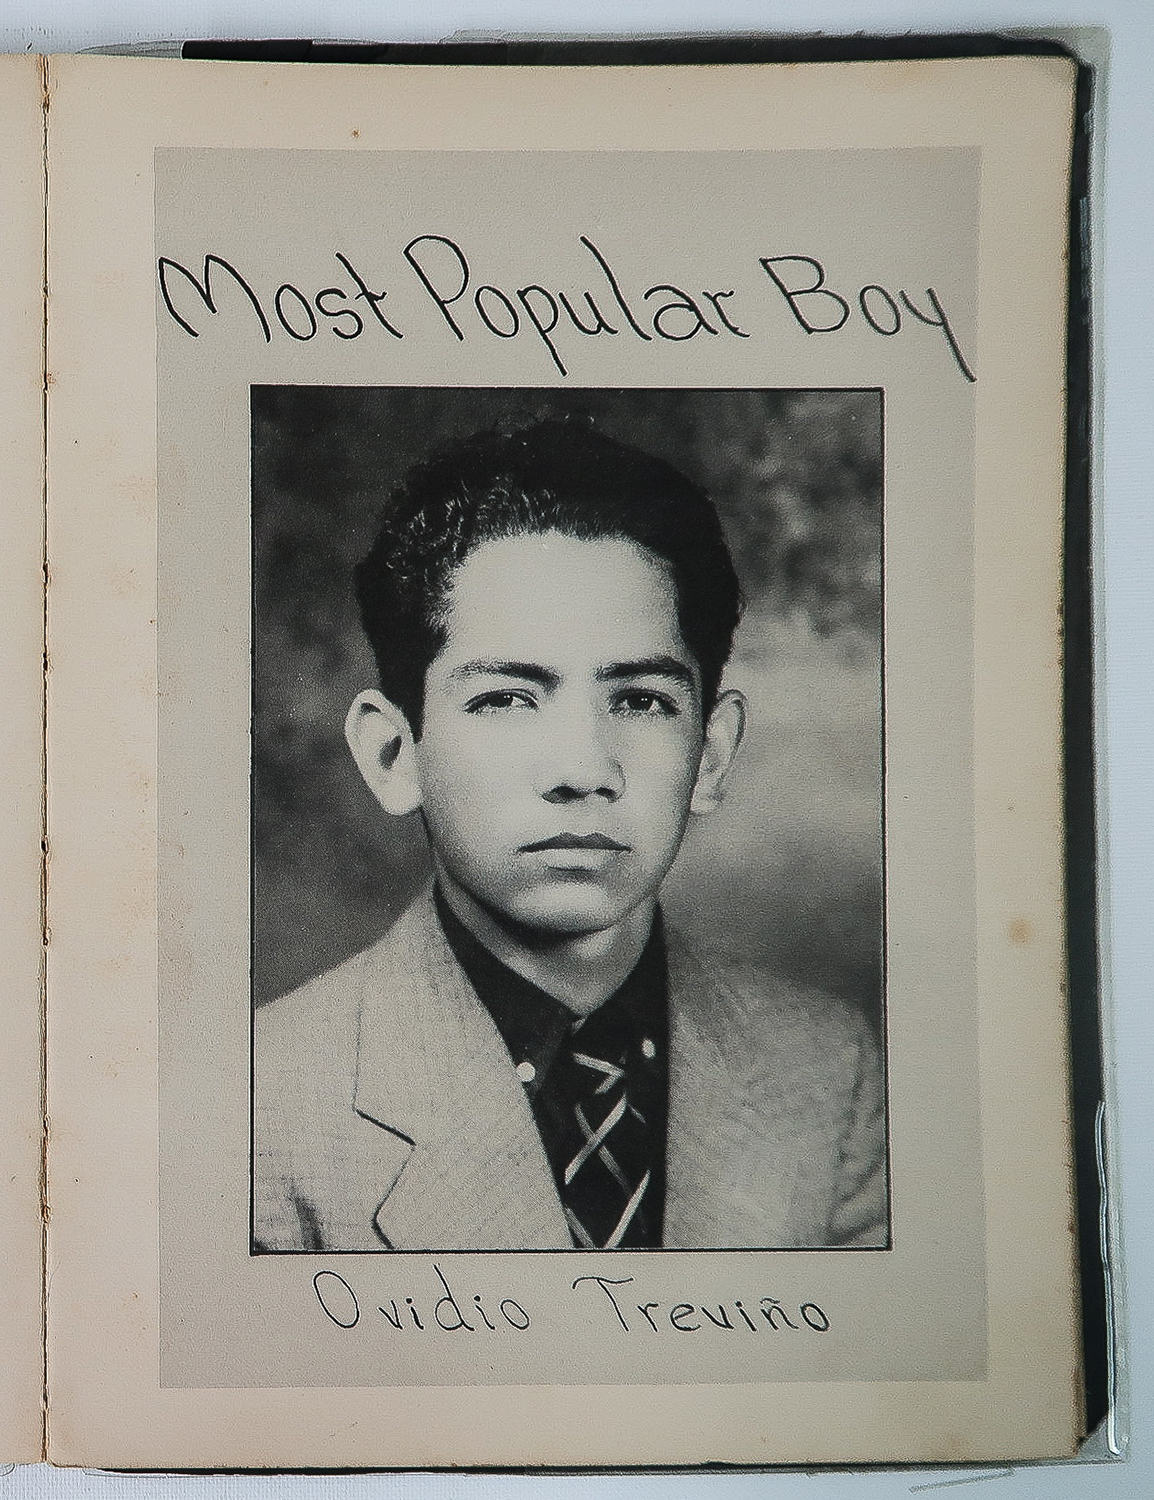 Most Popular Boy
Ovidio Treviño